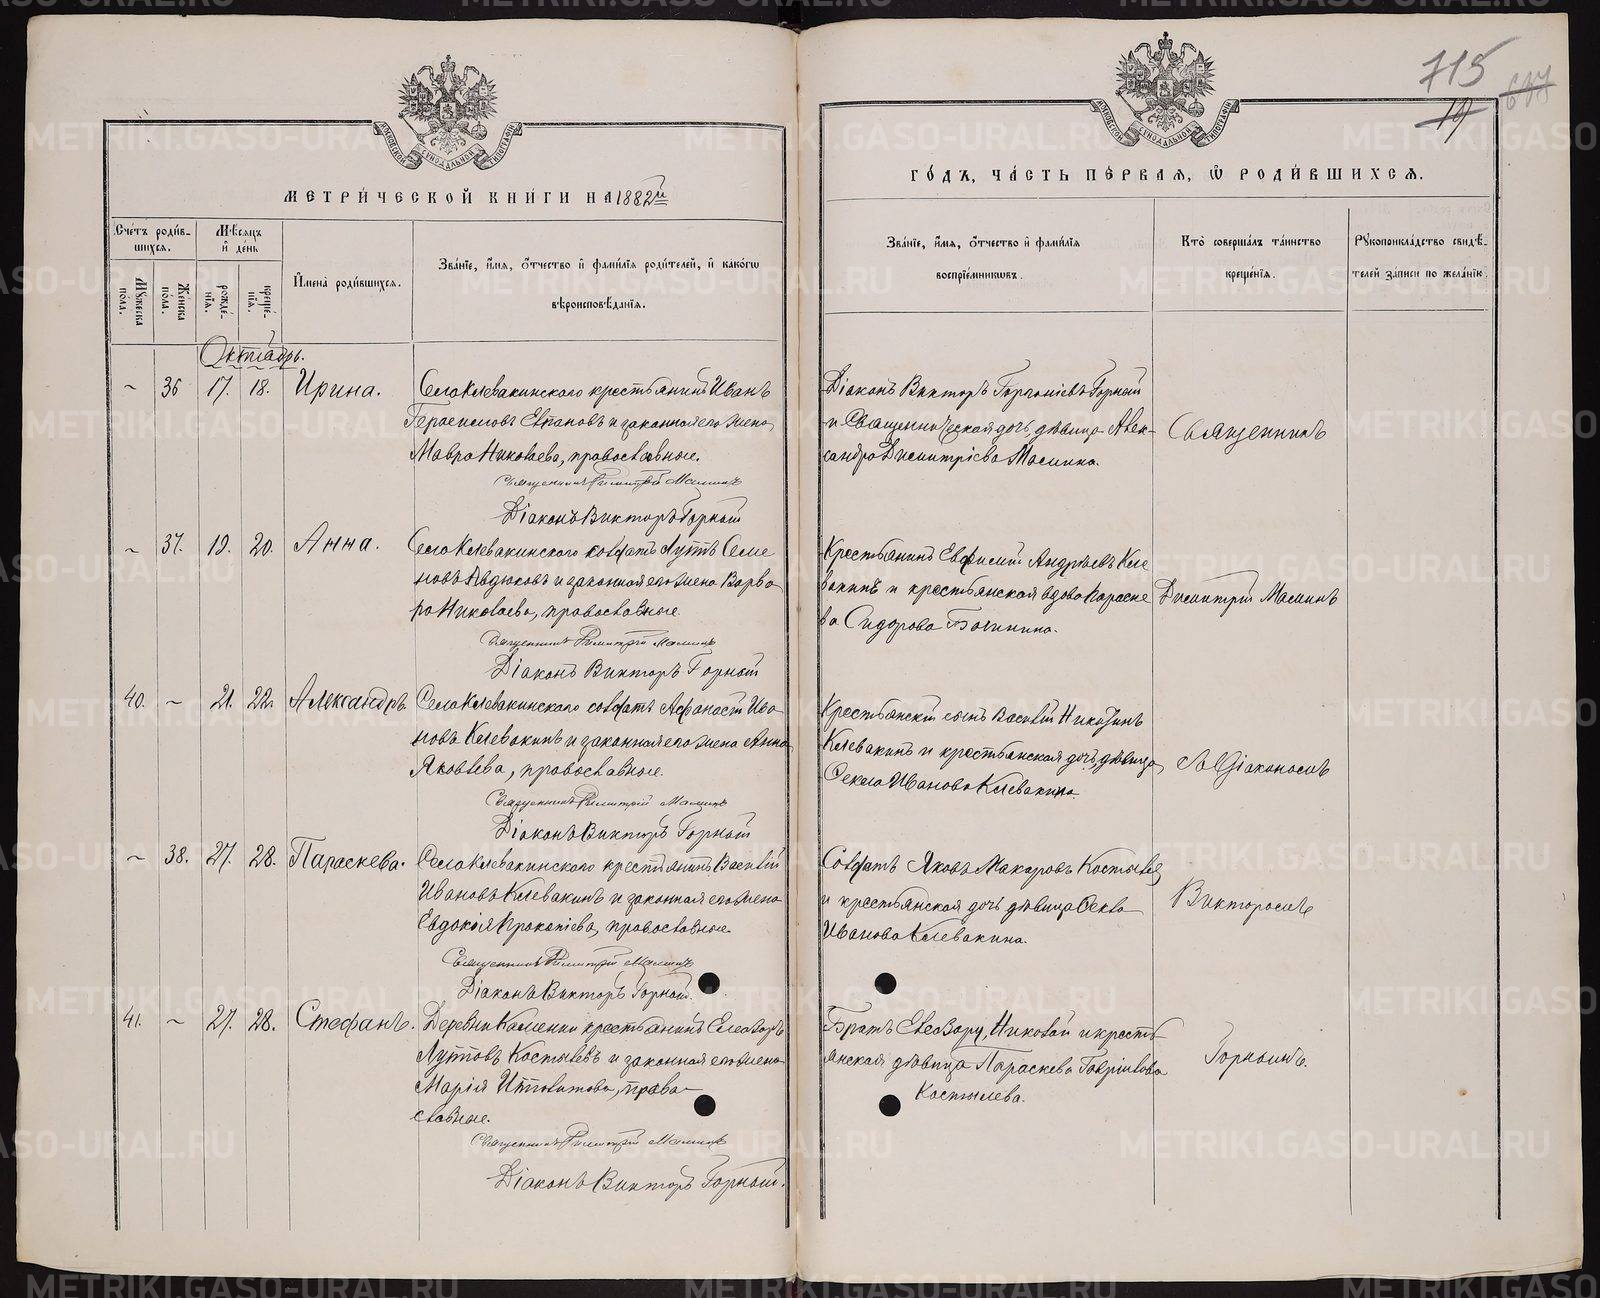 715
19
МЕТРИ́ЧЕСКОЙ КНИ́ГИ НА 1882й
ГО́ДЪ, ЧА́СТЬ ПЕ́РВАЯ, Ѿ РОДИ́ВШИХСЯ.
МОСКОВСКОЙ СѴНОДАЛЬНОЙ ТИПОГРАФІИ
МОСКОВСКОЙ СѴНОДАЛЬНОЙ ТИПОГРАФІИ
Сче́тъ роди́в-
шихся.
Мѣсяцъ
и҆ де́нь
Мꙋ́жеска
по́ла.
Же́нска
по́ла.
рожде́-
нїя.
креще́-
нїя.
И҆мена̀ роди́вшихся.
Зва́нїе, и҆́мя, ѻ҆́тчество и҆ фами́лїя роди́телей, и҆ како́гѡ
вѣроисповѣ́данїя.
Зва́нїе, и҆́мя, ѻ҆́тчество и҆ фами́лїя
воспрїе́мниковъ.
Кто̀ соверша́лъ та́инство
креще́нїя.
Рꙋкоприкла́дство свидѣ́-
телей за́писи по жела́нїю.
Октябрь.
~ 36 17. 18. Ирина.
Села Клевакинскаго крестьянинъ Иванъ
Герасимовъ Евпановъ и законная его жена
Мавра Николаева, православные.
Священникъ Димитрій Маминъ
Діаконъ Викторъ Горный
Діаконъ Викторъ Горгоніевъ Горный
и Священническая дочь девица Алек-
сандра Димитріева Мамина.
Священникъ
~ 37. 19. 20. Анна.
Села Клевакинскаго солдатъ Луппъ Семе
новъ Авдюковъ и законная его жена Варва
ра Николаева, православные
Священникъ Димитрій Маминъ
Діаконъ Викторъ Горный
Крестьянинъ Евфимій Андреевъ Кле
вакинъ и крестьянская вдова Параске
ва Сидорова Бачинина.
Димитрій Маминъ
40. ~ 21. 22. Александръ.
Села Клевакинскаго солдатъ Афанасій Ива
новъ Клевакинъ и законная его жена Анна
Яковлева, православные.
Священникъ Димитрій Маминъ
Діаконъ Викторъ Горный
Крестьянскій сынъ Василій Никитинъ
Клевакинъ и крестьянская дочь девица
Секла Иванова Клевакина.
Съ Діакономъ
~ 38. 27. 28. Параскева.
Села Клевакинскаго крестьянинъ Василій
Ивановъ Клевакинъ и законная его жена
Евдокія Прокопіева, православные.
Священникъ Димитрій Маминъ
Діаконъ Викторъ Горный.
Солдатъ Яковъ Макаровъ Костылев
и крестьянская дочь девица Секла
Иванова Клевакина.
Викторомъ
41. ~ 27. 28. Стефанъ.
Деревни Каменки крестьянинъ Елеазаръ
Лупповъ Костылевъ и законная его жена
Марія Ипполитова, право-
славные.
Священникъ Димитрій Маминъ
Діаконъ Викторъ Горный.
Братъ Елеазару, Николай и кресть
янская девица Параскева Гавриилова
Костылева.
Горнымъ.
METRIKI.GASO-URAL.RU